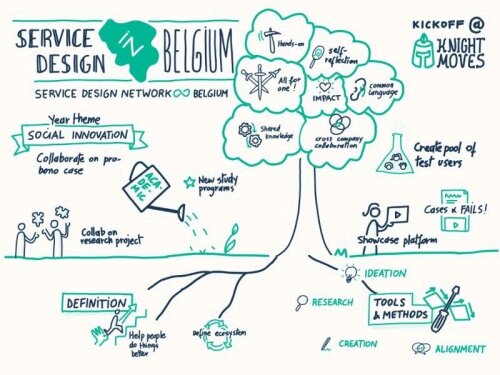 SERVICE
DESIGN
IN
BELGIUM
SERVICE DESIGN NETWORK BELGIUM
KICKOFF @
KNIGHT
MOVES
Hands-on
self-
reflection
All for
one!
IMPACT
common
language
Shared
knowledge
cross company
collaboration
Year theme
SOCIAL INNOVATION
Collaborate on pro-
bono case
ACA
DE
MIC
New study
programs
Create pool of
test users
Cases & FAILS!
Collab on
research project
Showcase platform
DEFINITION
Help people
do things
better
Define ecosystem
IDEATION
RESEARCH
TOOLS
& METHODS
CREATION
ALIGNMENT